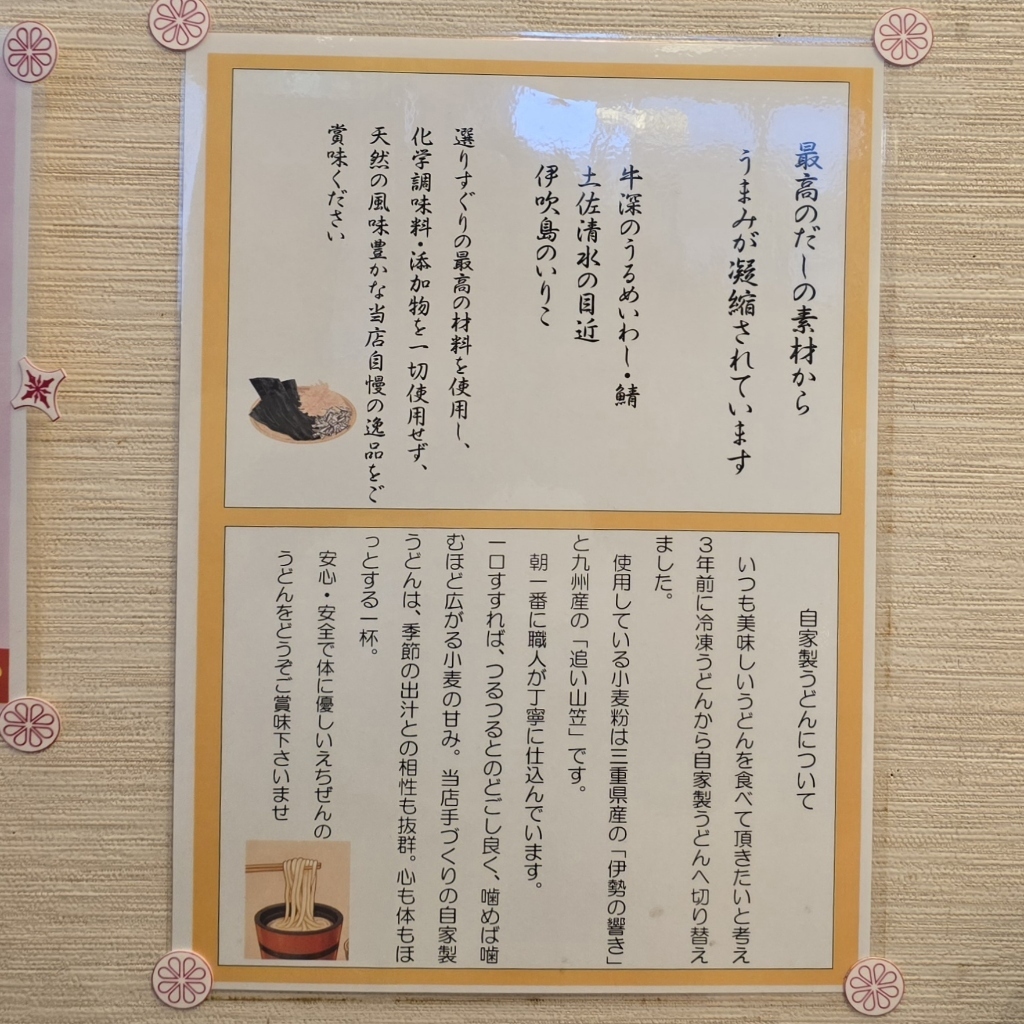 最高のだしの素材から
うまみが凝縮されています
牛深のうるめいわし・鯖
土佐清水の目近
伊吹島のいりこ
選りすぐりの最高の材料を使用し、
化学調味料・添加物を一切使用せず、
天然の風味豊かな当店自慢の逸品をご
賞味ください
自家製うどんについて
いつも美味しいうどんを食べて頂きたいと考え
３年前に冷凍うどんから自家製うどんへ切り替え
ました。
使用している小麦粉は三重県産の「伊勢の響き」
と九州産の「追い山笠」です。
朝一番に職人が丁寧に仕込んでいます。
一口すすれば、つるつるとのどごし良く、噛めば噛
むほど広がる小麦の甘み。当店手づくりの自家製
うどんは、季節の出汁との相性も抜群。心も体もほ
っとする一杯。
安心・安全で体に優しいえちぜんの
うどんをどうぞご賞味下さいませ